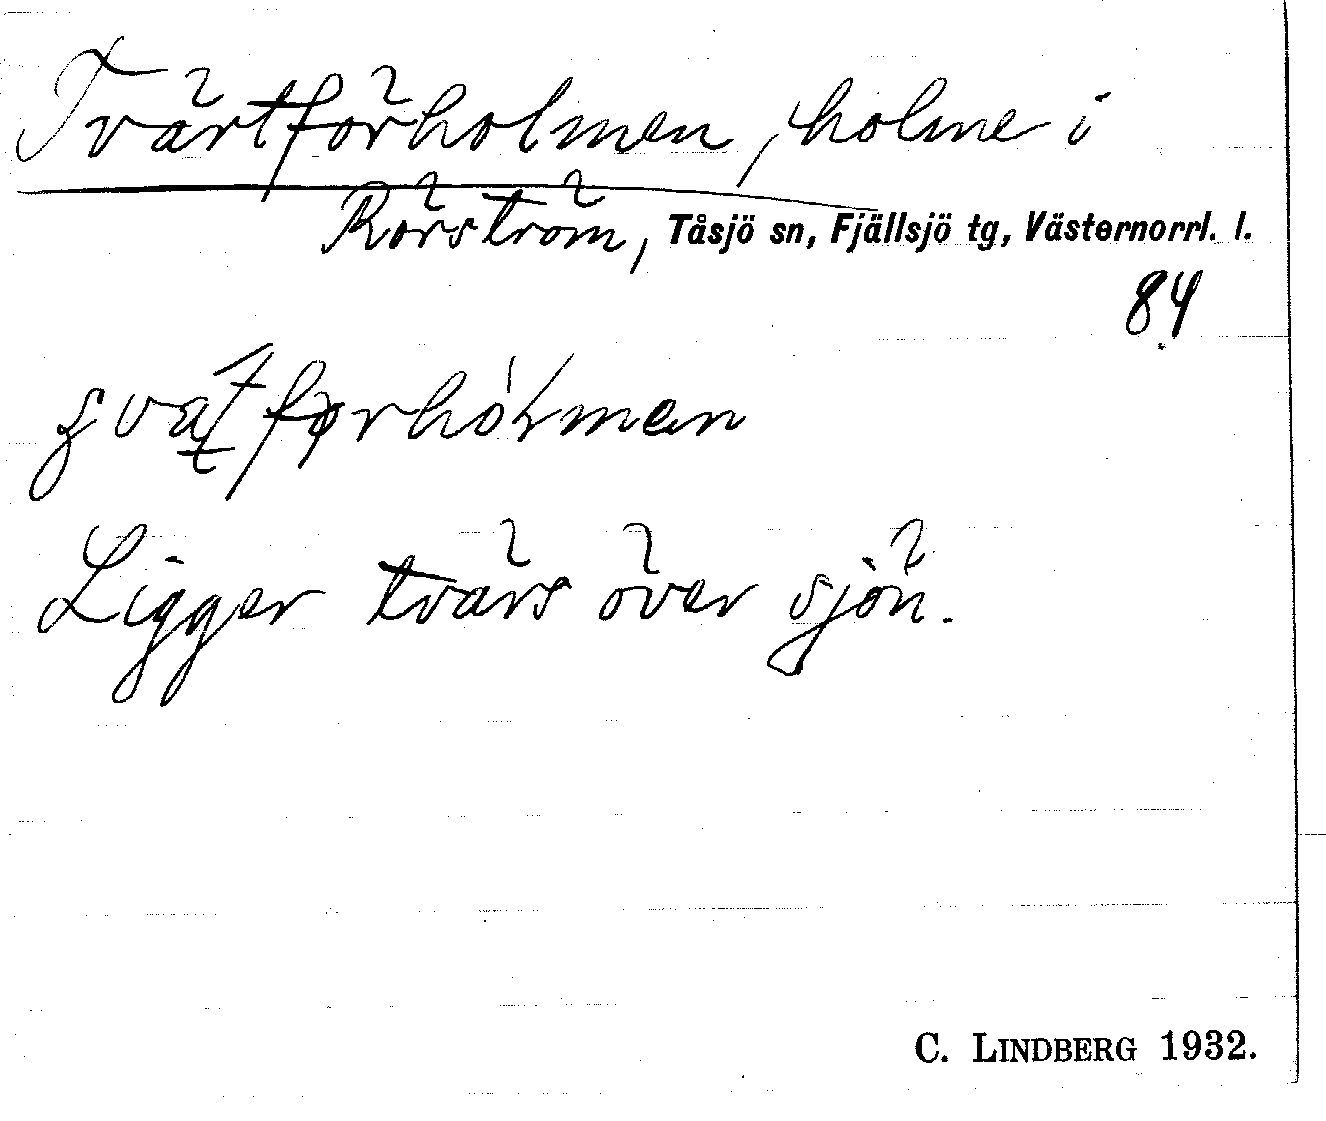 Tvärtförholmen, holme i
Rörström, Tåsjö sn, Fjällsjö tg, Västernorrl. l.
84
Ligger tvärs över sjön.
C. LINDBERG 1932.